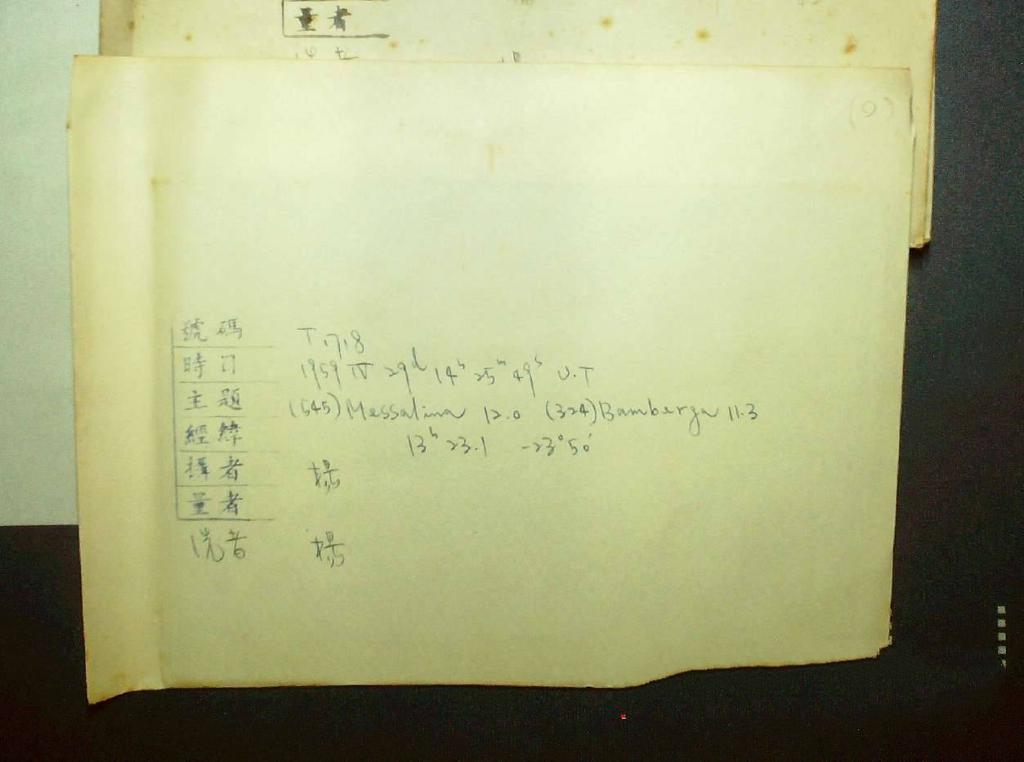 量者
(9)
號碼 T.1718
時日 1959 IV 29d 14h 25m 49s U.T
主題 (545) Messalina 12.0 (324) Bamberga 11.3
經緯 13h 23.1 -23°50'
攝者 楊
量者
洗者 楊